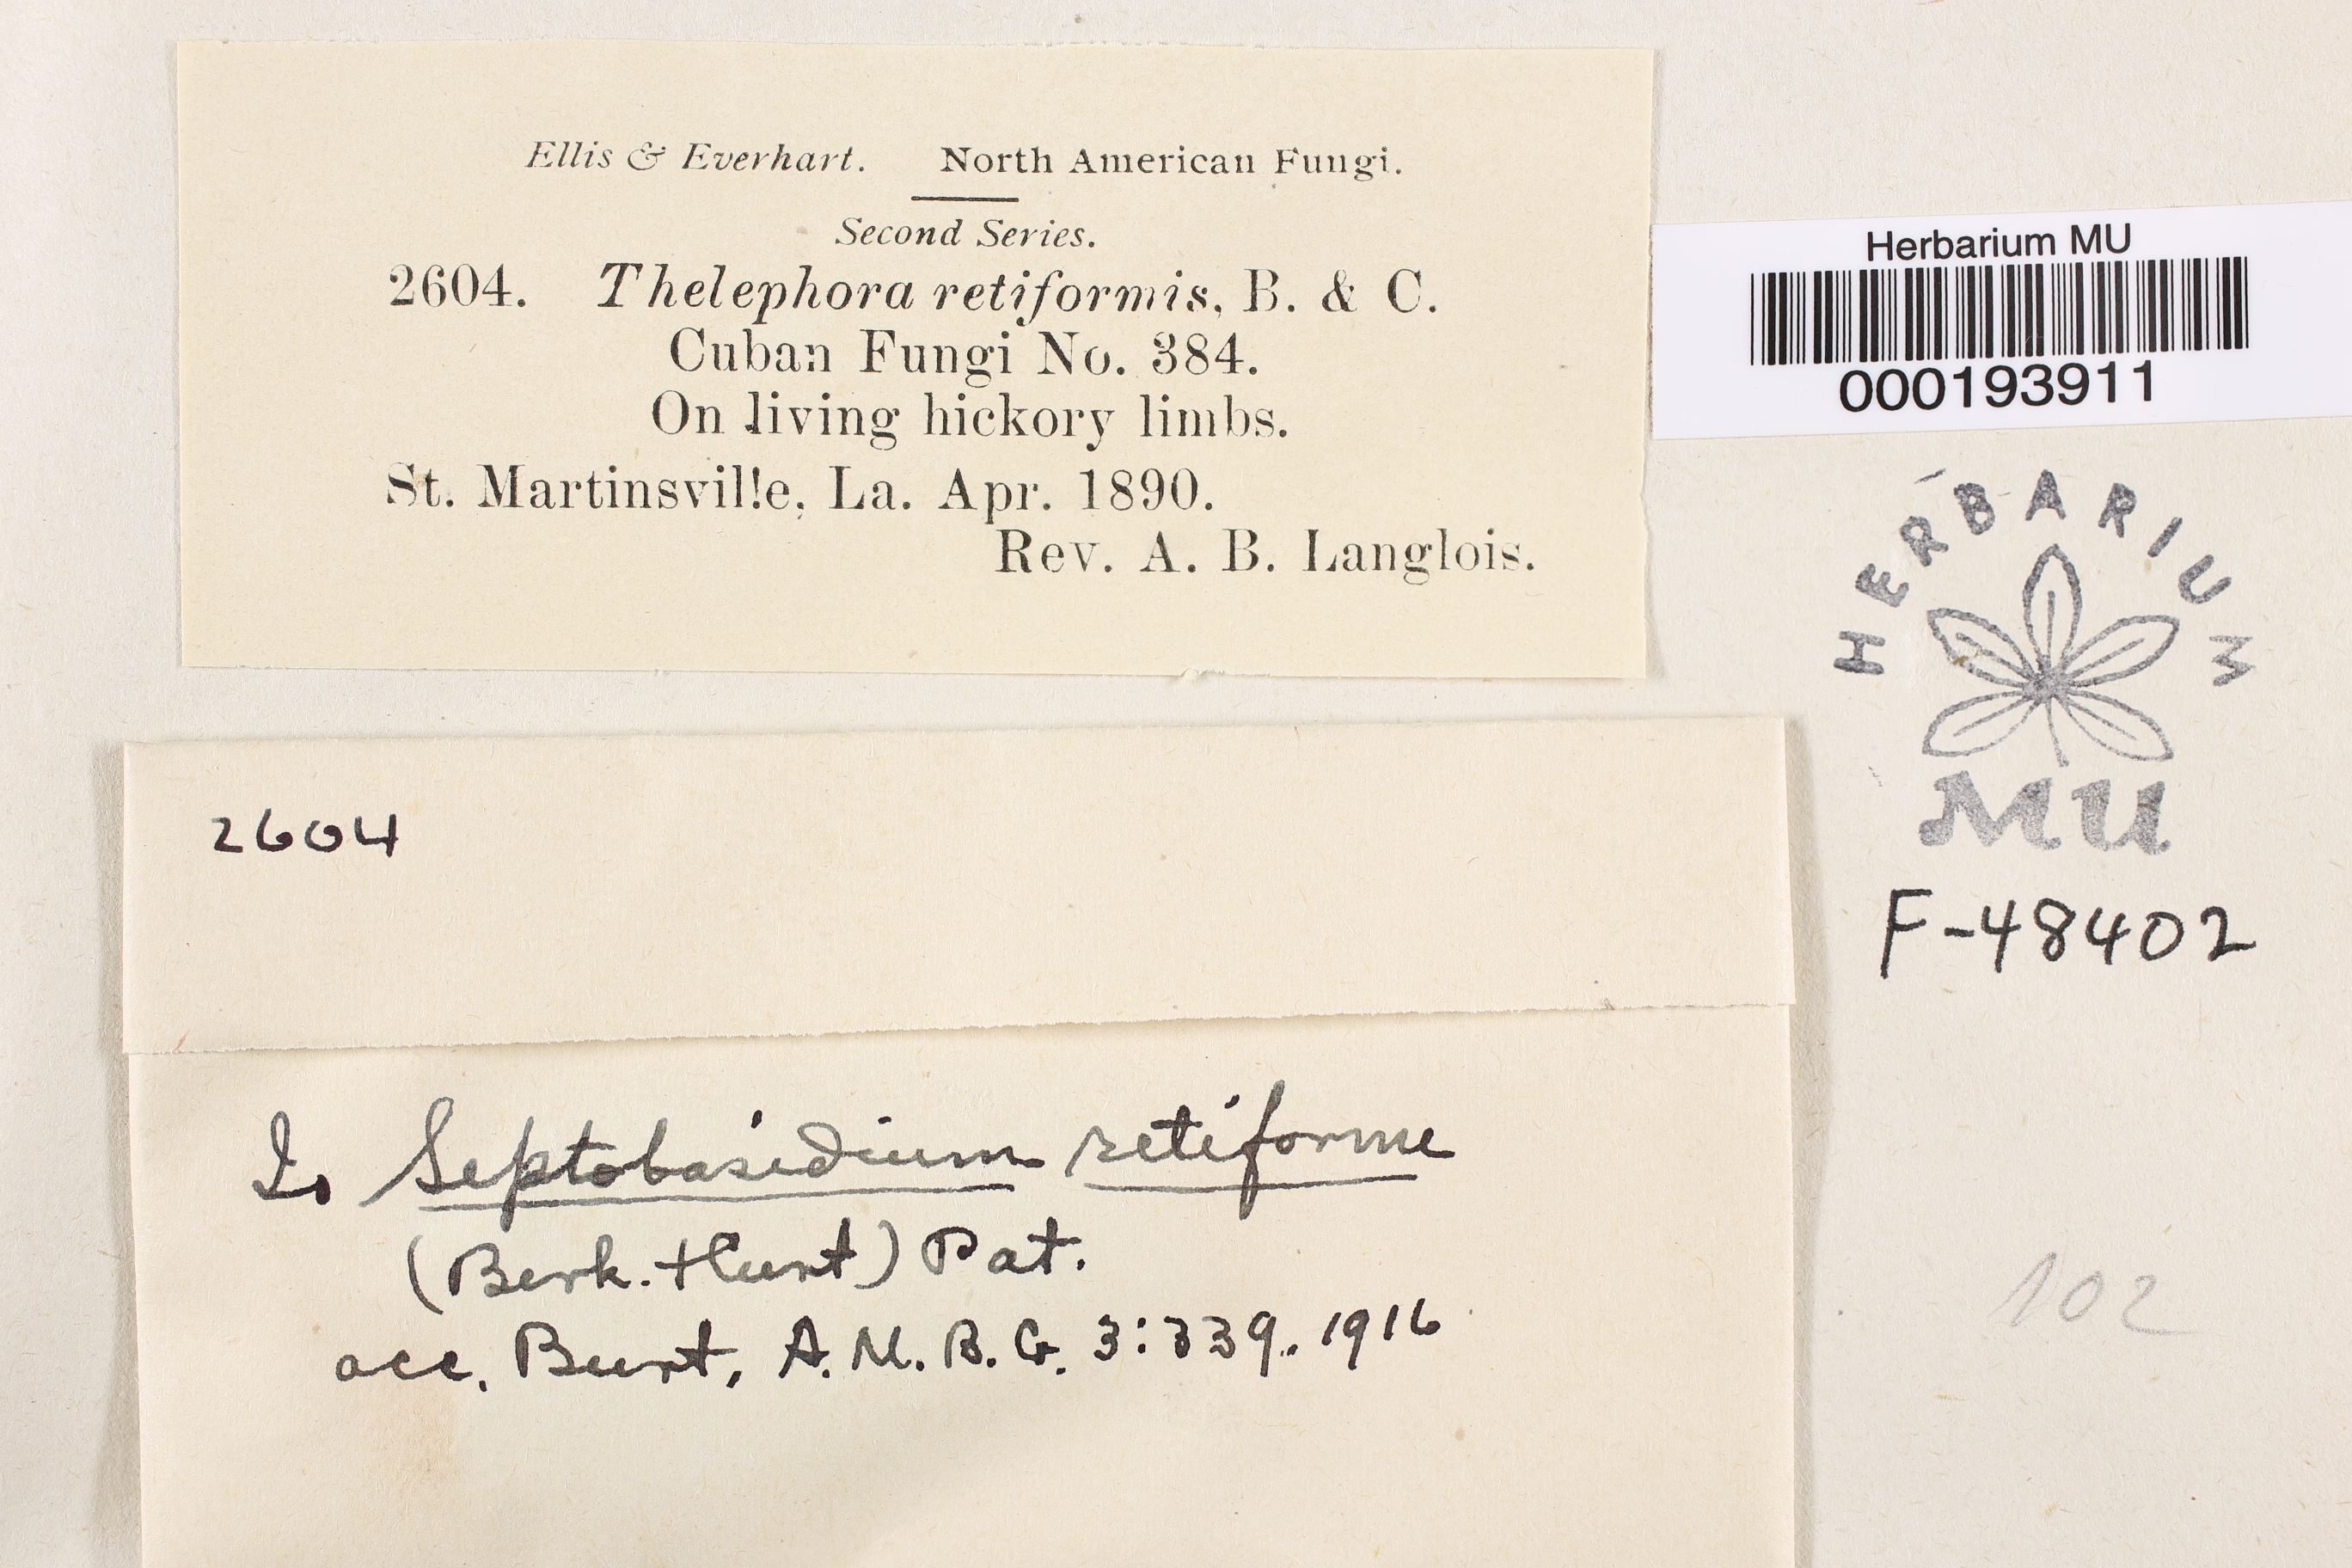 Ellis & Everhart. North American Fungi.
Second Series.
2604. Thelephora retiformis, B. & C.
Cuban Fungi No. 384.
On living hickory limbs.
St. Martinsville, La. Apr. 1890.
Rev. A. B. Langlois.
Herbarium MU
000193911
HERBARIUM
MU
F-48402
2604
Is Septobasidium retiforme
(Berk. + Curt) Pat.
acc. Burt, A. M. B. G. 3:339. 1916
102